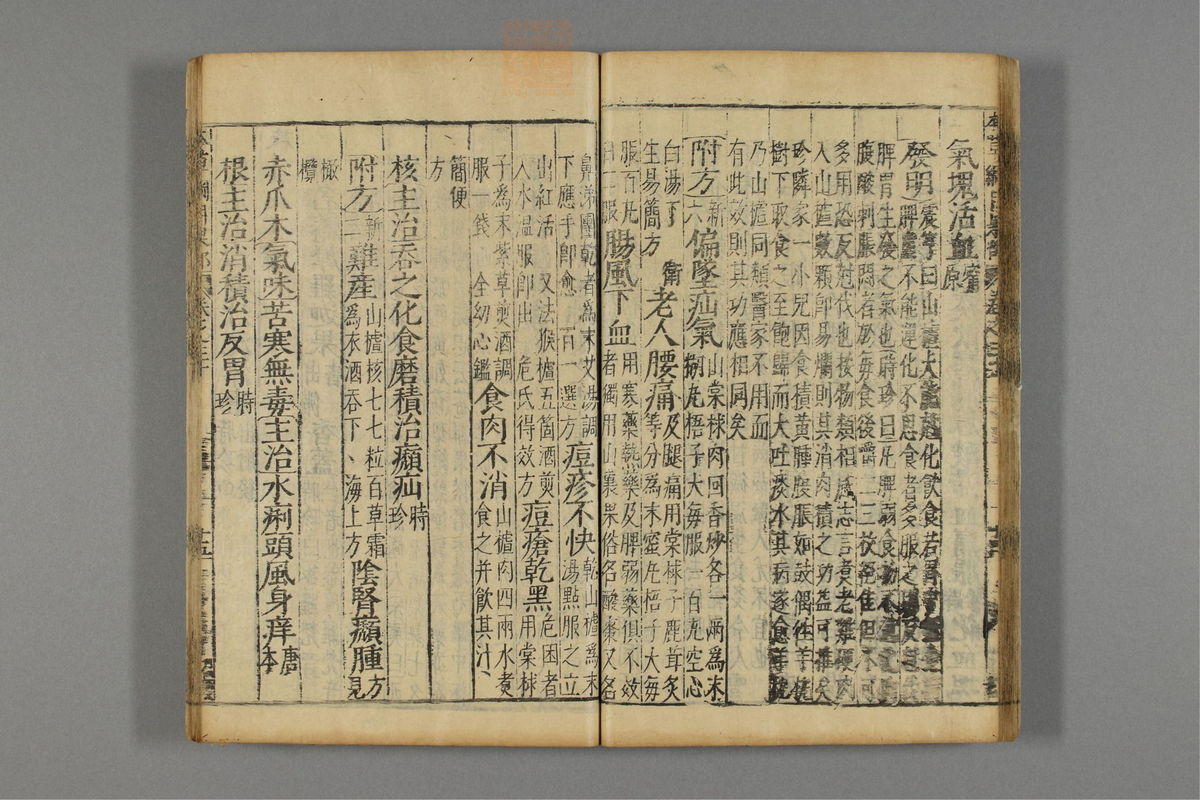 氣塊活血甯原
發明震亨曰山樝大能尅化飲食若胃中
脾虛不能運化不思食者多服之則反
脾胃生發之氣也時珍曰凡脾弱食物不
腹酸刺脹悶者於每食後嚼二三枚絕佳但不可
多用恐反尅伐也按物類相感志言煑老雞硬肉
入山樝數顆即易爛則其消肉積之功蓋可推矣
珍鄰家一小兒因食積黃腫腹脹如鼓偶往羊
樹下取食之至飽歸而大吐痰水其病遂愈羊
乃山樝同類醫家不用而
有此效則其功應相同矣
附方新六偏墜疝氣山棠梂肉茴香炒各一兩為末糊丸梧子大每服一百丸空心
白湯下衞生易簡方老人腰痛及腿痛用棠梂子鹿茸炙等分為末蜜丸梧子大每
服百丸日二服腸風下血用寒藥熱藥及脾弱藥俱不效者獨用山裏果俗名酸棗又名
鼻涕團乾者為末艾湯調下應手即愈 百一選方痘疹不快乾山樝為末湯點服之立
出紅活 又法猴樝五箇酒煎入水溫服即出 危氏得效方痘瘡乾黑危困者用棠梂
子為末紫草煎酒調服一錢 全幼心鑑食肉不消山樝肉四兩水煑食之并飲其汁、
簡便方
核主治吞之化食磨積治癩疝時珍
附方新一難產山樝核七七粒百草霜為衣酒吞下、海上方陰腎癩腫方見
橄欖
赤爪木氣味苦寒無毒主治水痢頭風身痒唐本
根主治消積治反胃時珍